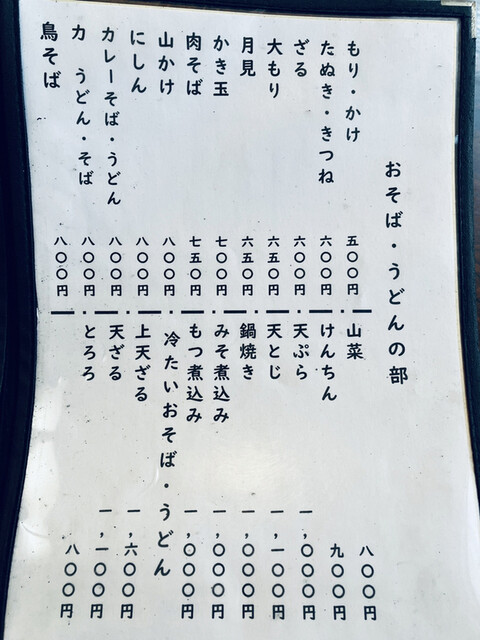 おそば・うどんの部
もり・かけ 五〇〇円
たぬき・きつね 六〇〇円
ざる 六〇〇円
大もり 六五〇円
月見 六五〇円
かき玉 七〇〇円
肉そば 七五〇円
山かけ 八〇〇円
にしん 八〇〇円
カレーそば・うどん 八〇〇円
力 うどん・そば 八〇〇円
鳥そば 八〇〇円
山菜 八〇〇円
けんちん 九〇〇円
天ぷら 一,〇〇〇円
天とじ 一,一〇〇円
鍋焼き 一,〇〇〇円
みそ煮込み 一,〇〇〇円
もつ煮込み 一,〇〇〇円
冷たいおそば・うどん
上天ざる 一,六〇〇円
天ざる 一,一〇〇円
とろろ 八〇〇円